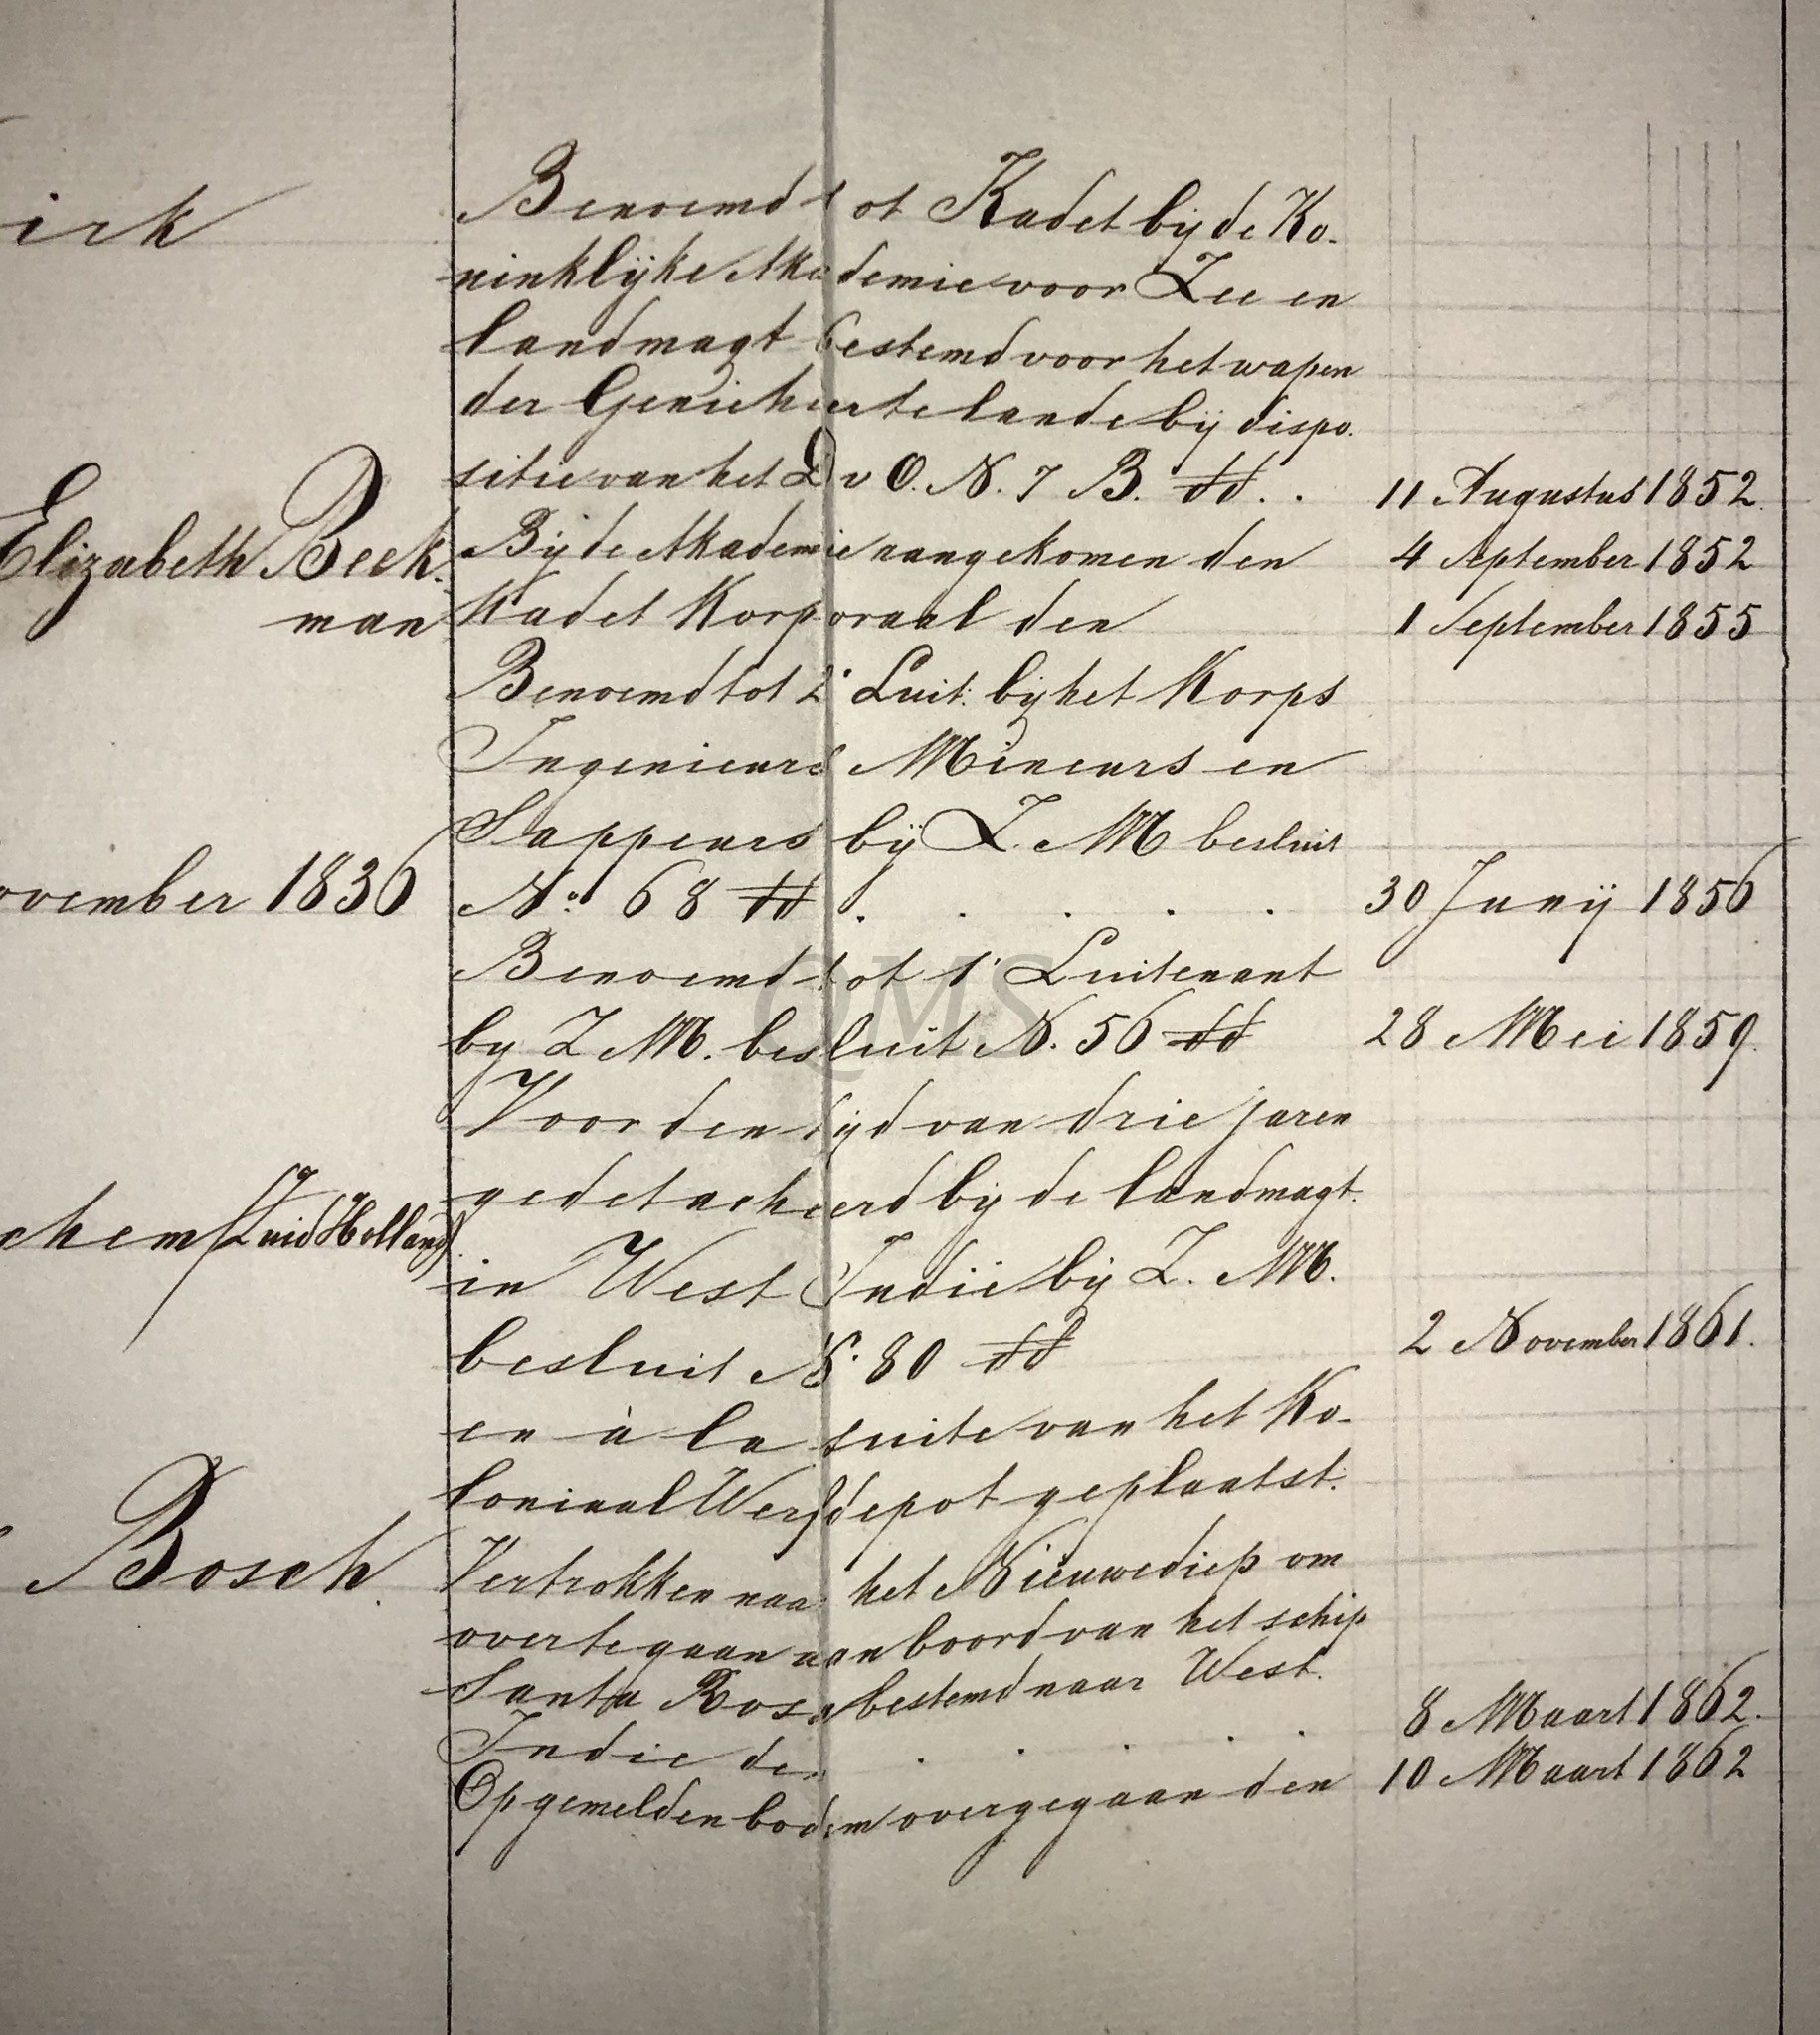 irk
Elizabeth Beek-
man
ovember 1836
chem (Zuid Holland)
Bosch.
Benoemd tot Kadet bij de Ko-
ninklijke Akademie voor Zee en
landmagt bestemd voor het wapen
der Genie hier te lande bij dispo-
sitie van het D v O. N. 7 B. dd. . 11 Augustus 1852.
Bij de Akademie aangekomen den 4 September 1852
Kadet Korporaal den 1 September 1855
Benoemd tot 2e Luit: bij het Korps
Ingenieurs Mineurs en
Sappeurs bij Z. M besluit
No. 68 dd . . . . . 30 Junij 1856
Benoemd tot 1e Luitenant
bij Z M. besluit N. 56 dd 28 Mei 1859.
Voor den tijd van drie jaren
gedetacheerd bij de landmagt
in West Indië bij Z. M.
besluit N. 80 dd 2 November 1861.
en à la suite van het Ko-
loniaal Werfdepot geplaatst.
Vertrokken naar het Nieuwediep om
over te gaan aan boord van het schip
Santa Rosa bestemd naar West.
Indie den . . . . . 8 Maart 1862.
Op gemelden bodem overgegaan den 10 Maart 1862
QMS